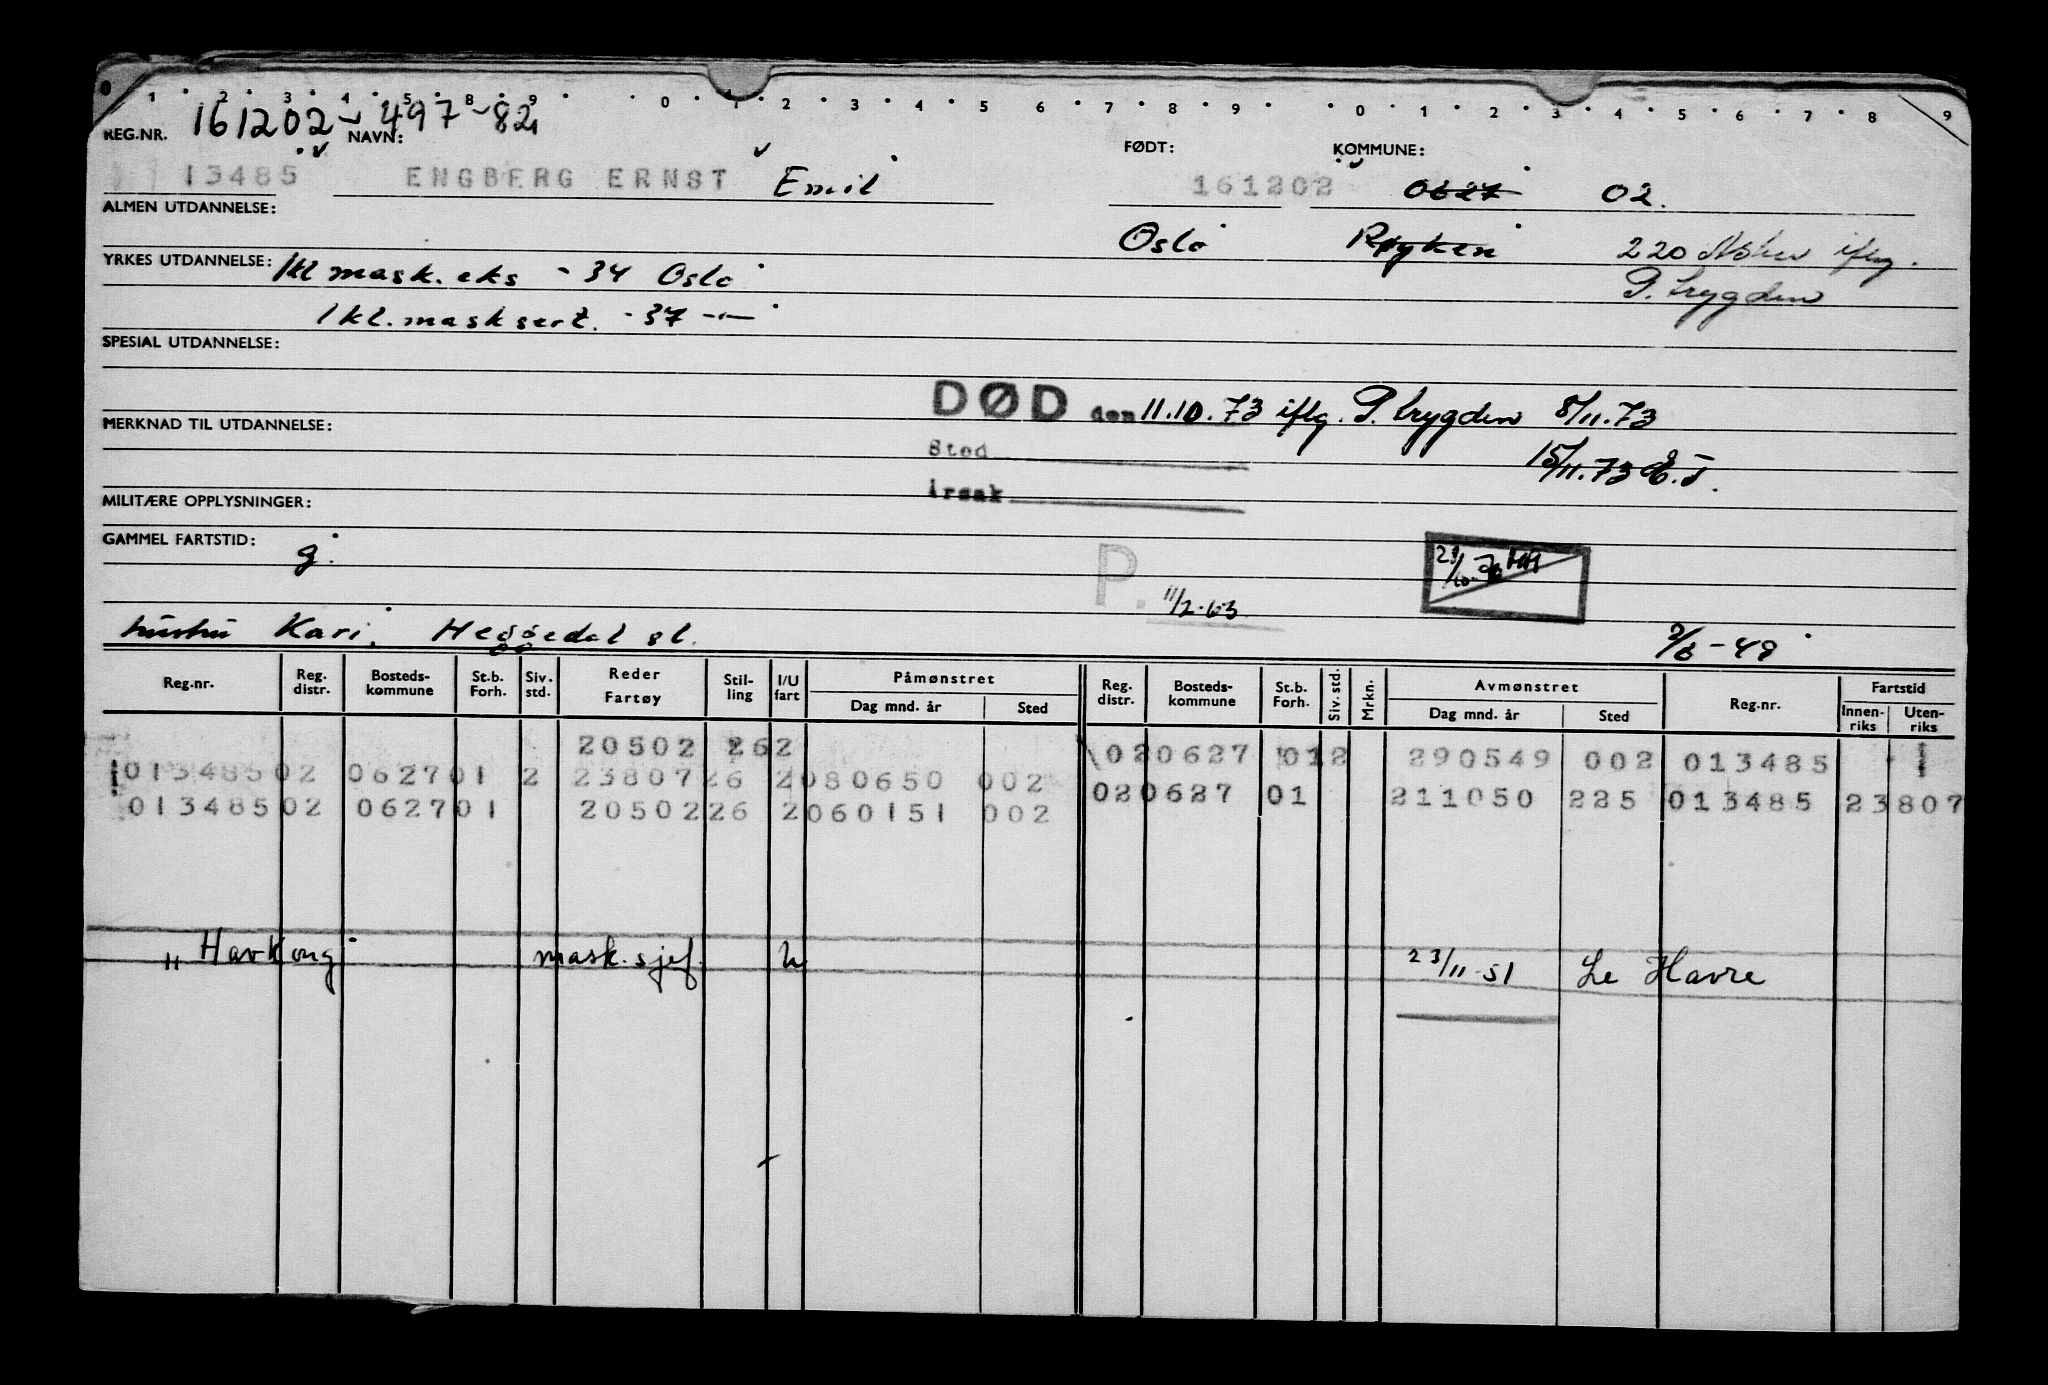 0 1 2 3 4 5 8 9 0 1 2 3 4 5 6 7 8 9 0 1 2 3 4 5 6 7 8 9
REG.NR. 161202 - 497 - 82
NAVN: FØDT: KOMMUNE:
13485 ENGBERG ERNST Emil 161202 0627 02.
ALMEN UTDANNELSE:
Oslo Røyken 220 Asker iflg.
P. trygden
YRKES UTDANNELSE: 1kl mask. eks - 34 Oslo
1 kl. mask sert. - 37 -"-
SPESIAL UTDANNELSE:
DØD den 11.10.73 iflg. P. trygden 8/11.73
MERKNAD TIL UTDANNELSE:
Sted
15/11.73
Årsak
MILITÆRE OPPLYSNINGER:
GAMMEL FARTSTID: g.
P. 11/2-63
hustru Kari, Heggedal st.
2/6-48
Reg.nr. Reg. distr. Bosteds-kommune St.b. Forh. Siv. std. Reder Fartøy Stil-ling I/U fart Påmønstret Dag mnd. år Sted Reg. distr. Bosteds-kommune St.b. Forh. Siv. std. Mrkn. Avmønstret Dag mnd. år Sted Reg.nr. Fartstid Innen-riks Uten-riks
20502 262 020627 012 290549 002 013485
013485 02 0627 01 2 23807 26 2 080650 002 020627 01 211050 225 013485 23807
013485 02 0627 01 20502 26 2 060151 002
"Havkong" mask.sjef. U 23/11-51 Le Havre